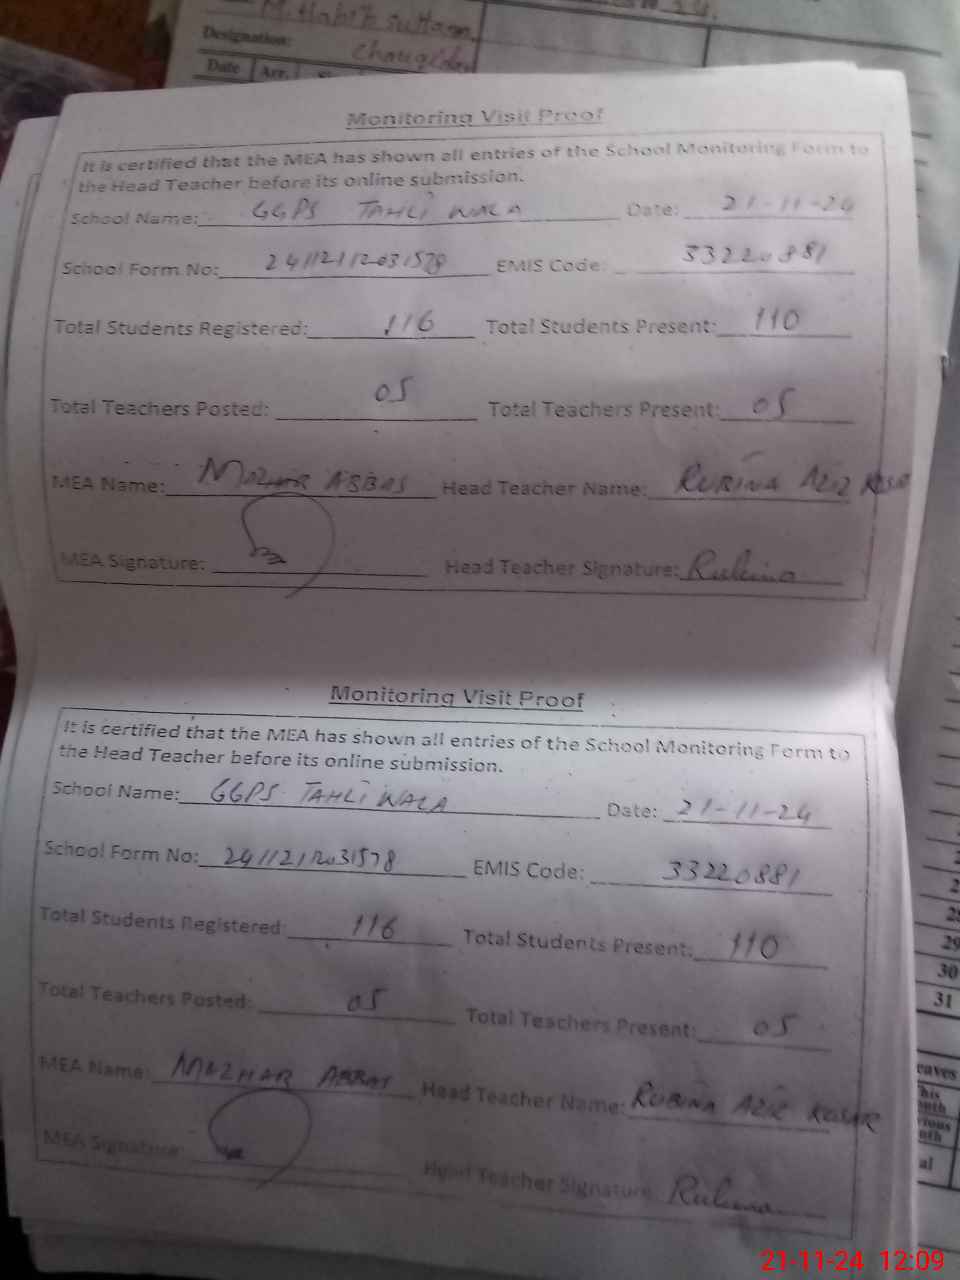 Designation:
Date Arr.
Monitoring Visit Proof
It is certified that the MEA has shown all entries of the School Monitoring Form to
the Head Teacher before its online submission.
School Name: GGPS TAHLI WALA Date: 21-11-24
School Form No: EMIS Code: 33220881
Total Students Registered: 116 Total Students Present: 110
Total Teachers Posted: 05 Total Teachers Present: 05
MEA Name: MAZHAR ABBAS Head Teacher Name: RUBINA AZIZ KOSAR
MEA Signature: Head Teacher Signature: Rubina
Monitoring Visit Proof
It is certified that the MEA has shown all entries of the School Monitoring Form to
the Head Teacher before its online submission.
School Name: GGPS TAHLI WALA Date: 21-11-24
School Form No: EMIS Code: 33220881
Total Students Registered: 116 Total Students Present: 110
Total Teachers Posted: 05 Total Teachers Present: 05
MEA Name: MAZHAR ABBAS Head Teacher Name: RUBINA AZIZ KOSAR
MEA Signature: Head Teacher Signature: Rubina
29
30
31
21-11-24 12:09